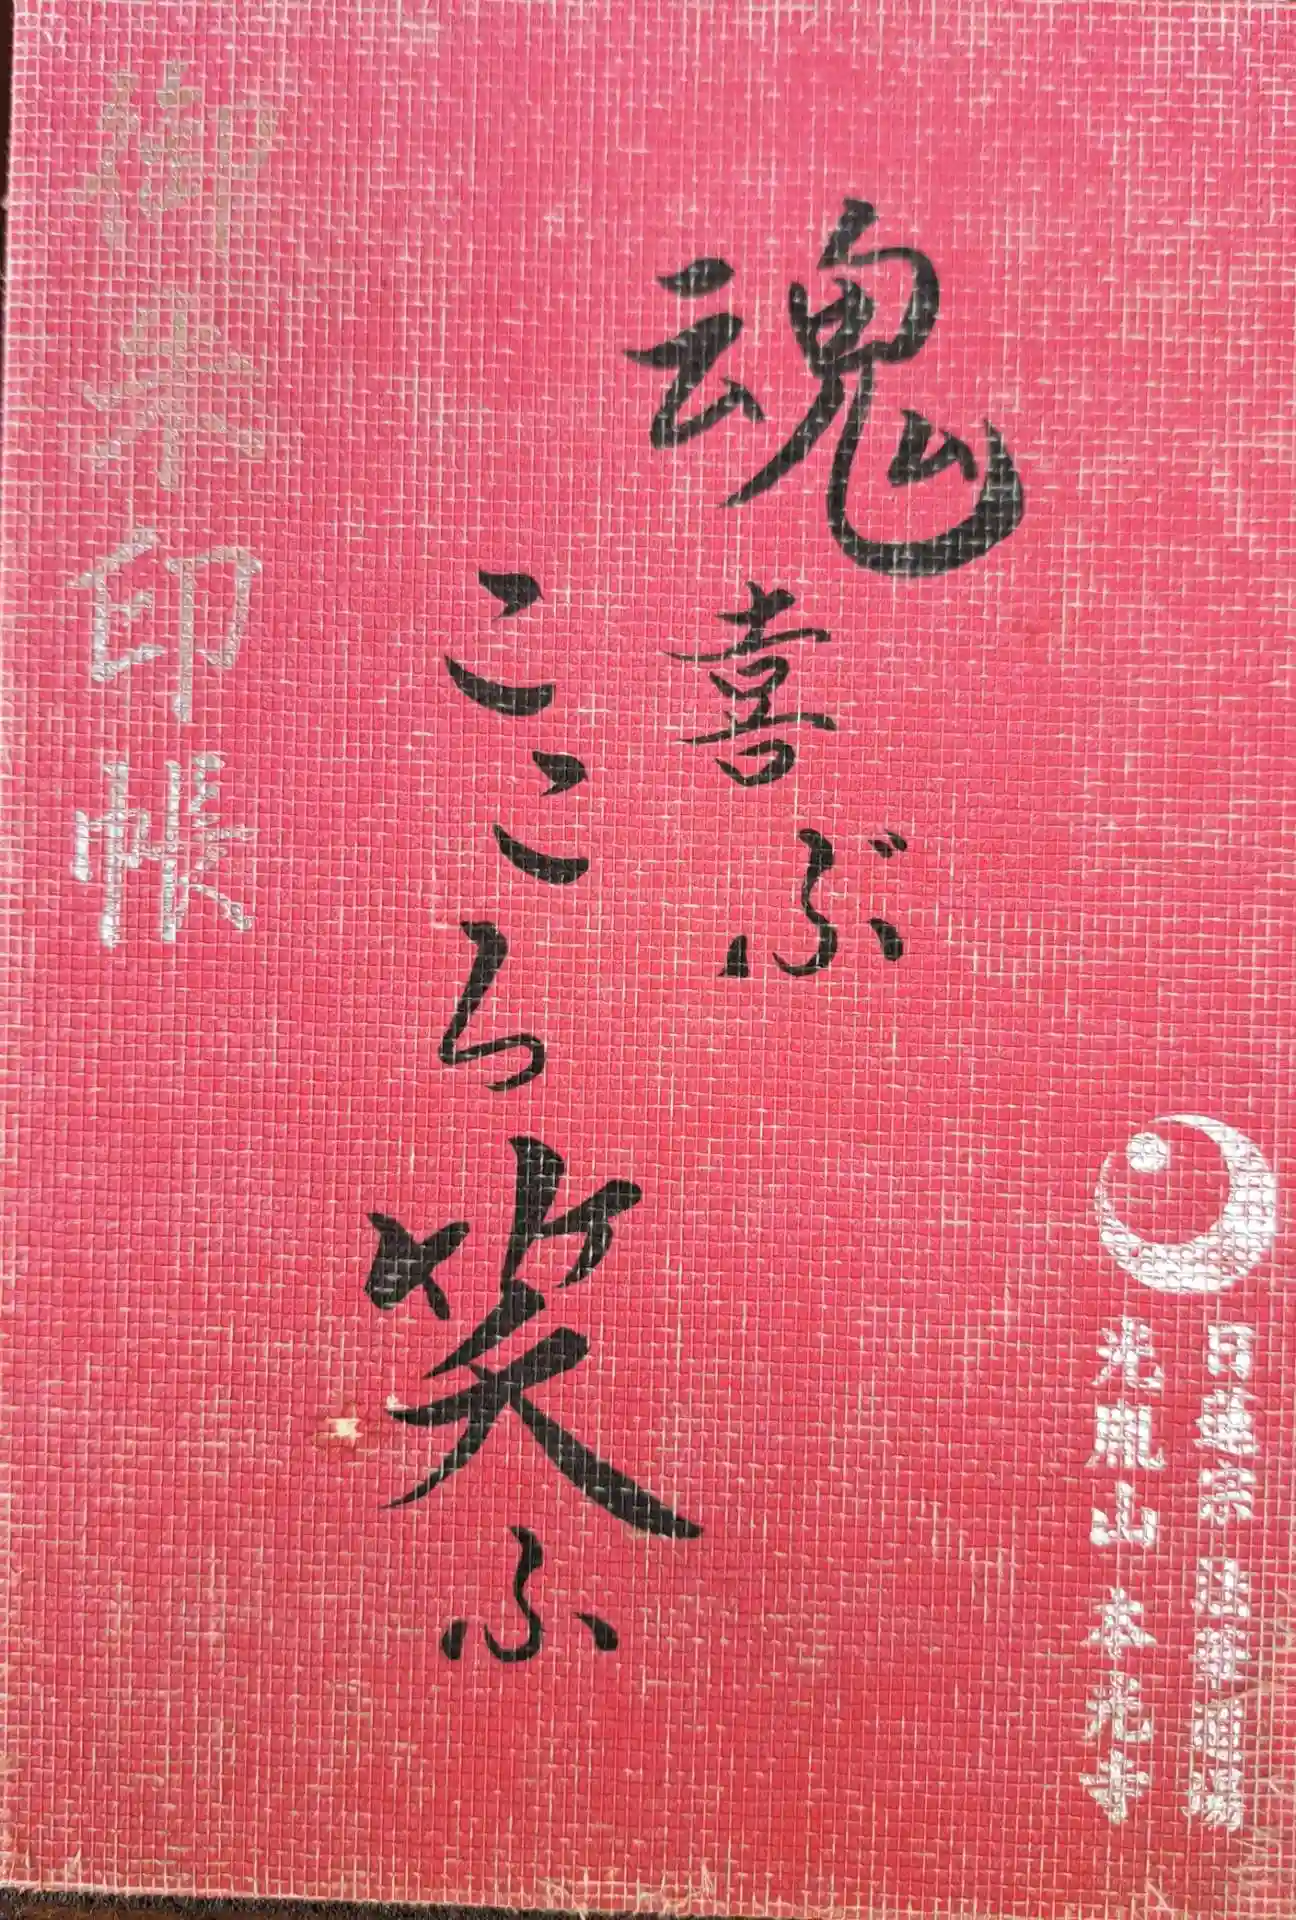 日蓮宗 法華道場
光胤山 本光寺
魂喜ぶ
こころ笑ふ
御朱印帳